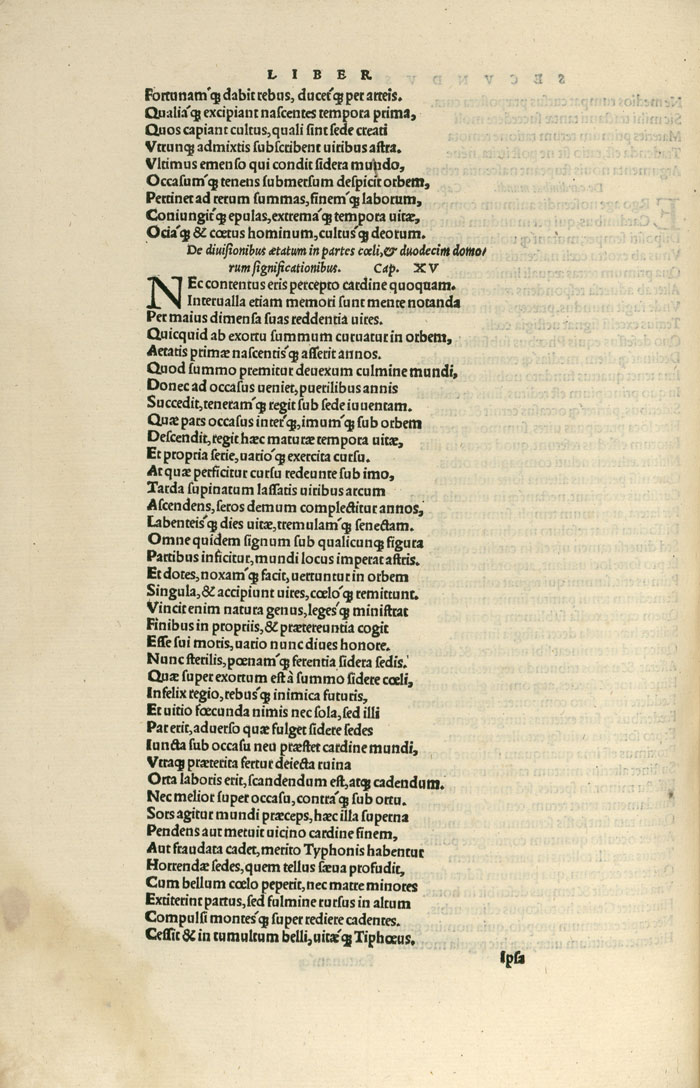 LIBER
Fortunamq́ꝫ dabit rebus, ducetq́ꝫ per arteis.
Qualiaq́ꝫ excipiant nascentes tempora prima,
Quos capiant cultus, quali sint sede creati
Vtrunqꝫ admixtis subscribent uiribus astra.
Vltimus emenso qui condit sidera mundo,
Occasumq́ꝫ tenens submersum despicit orbem,
Pertinet ad rerum summas, finemq́ꝫ laborum,
Coniungitq́ꝫ epulas, extremaq́ꝫ tempora uitæ,
Ociaq́ꝫ & cœtus hominum, cultusq́ꝫ deorum.
De diuisionibus ætatum in partes cœli, & duodecim domo-
rum significationibus. Cap. XV
NEc contentus eris percepto cardine quoquam.
Interualla etiam memori sunt mente notanda
Per maius dimensa suas reddentia uires.
Quicquid ab exortu summum curuatur in orbem,
Aetatis primæ nascentisq́ꝫ asserit annos.
Quod summo premitur deuexum culmine mundi,
Donec ad occasus ueniet, puerilibus annis
Succedit, teneramq́ꝫ regit sub sede iuuentam.
Quæ pars occasus interq́ꝫ, imumq́ꝫ sub orbem
Descendit, regit hæc maturæ tempora uitæ,
Et propria serie, uarioq́ꝫ exercita cursu.
At quæ perficitur cursu redeunte sub imo,
Tarda supinatum lassatis uiribus arcum
Ascendens, seros demum complectitur annos,
Labenteisq́ꝫ dies uitæ, tremulamq́ꝫ senectam.
Omne quidem signum sub qualicunqꝫ figura
Partibus inficitur, mundi locus imperat astris.
Et dotes, noxamq́ꝫ facit, uertuntur in orbem
Singula, & accipiunt uires, cœloq́ꝫ remittunt.
Vincit enim natura genus, legesq́ꝫ ministrat
Finibus in propriis, & prætereuntia cogit
Esse sui moris, uario nunc diues honore.
Nunc sterilis, pœnamq́ꝫ ferentia sidera sedis.
Quæ super exortum est à summo sidere cœli,
Infelix regio, rebusq́ꝫ inimica futuris,
Et uitio fœcunda nimis nec sola, sed illi
Par erit, aduerso quæ fulget sidere sedes
Iuncta sub occasu neu præstet cardine mundi,
Vtraqꝫ præterita fertur deiecta ruina
Orta laboris erit, scandendum est, atqꝫ cadendum.
Nec melior super occasu, contraq́ꝫ sub ortu.
Sors agitur mundi præceps, hæc illa superna
Pendens aut metuit uicino cardine finem,
Aut fraudata cadet, merito Typhonis habentur
Horrendæ sedes, quem tellus sæua profudit,
Cum bellum cœlo peperit, nec matre minores
Extiterint partus, sed fulmine rursus in altum
Compulsi montesq́ꝫ super rediere cadentes.
Cessit & in tumultum belli, uitæq́ꝫ Tiphœus.
Ipsa